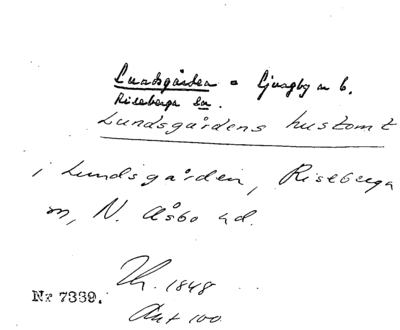 Lundsgården = Ljungby n b.
Riseberga sn.
Lundsgårdens hustomt
i Lundsgården, Riseberga
sn, N. Åsbo hd.
Th. 1848
Nr 7339.
Ant 100.